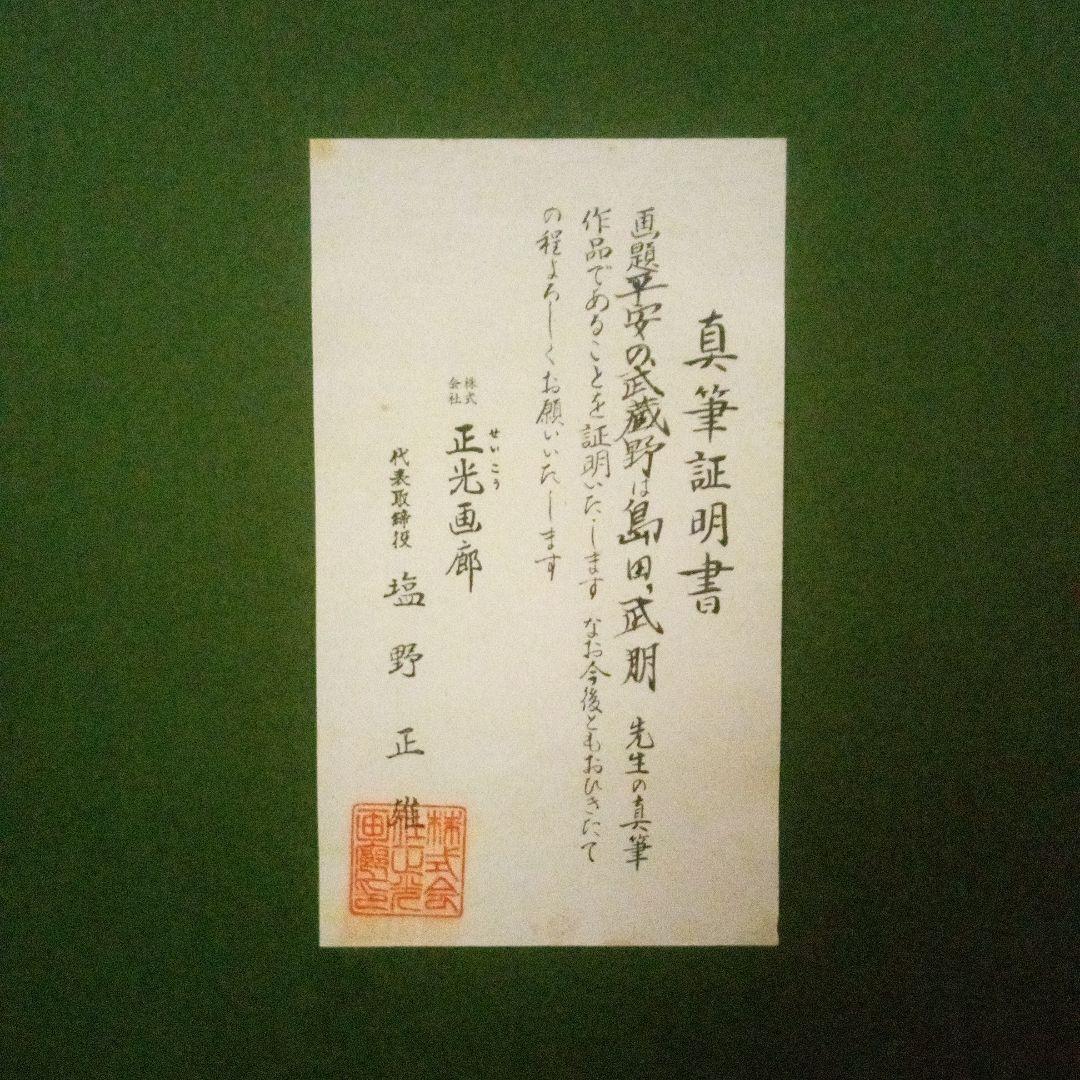 真筆証明書
画題平安の武蔵野は島田武明先生の真筆
作品であることを証明いたします なお今後ともおひきたて
の程よろしくお願いいたします
株式会社 正光画廊
せいこう
代表取締役 塩野正雄
株式会
社正光
画廊印